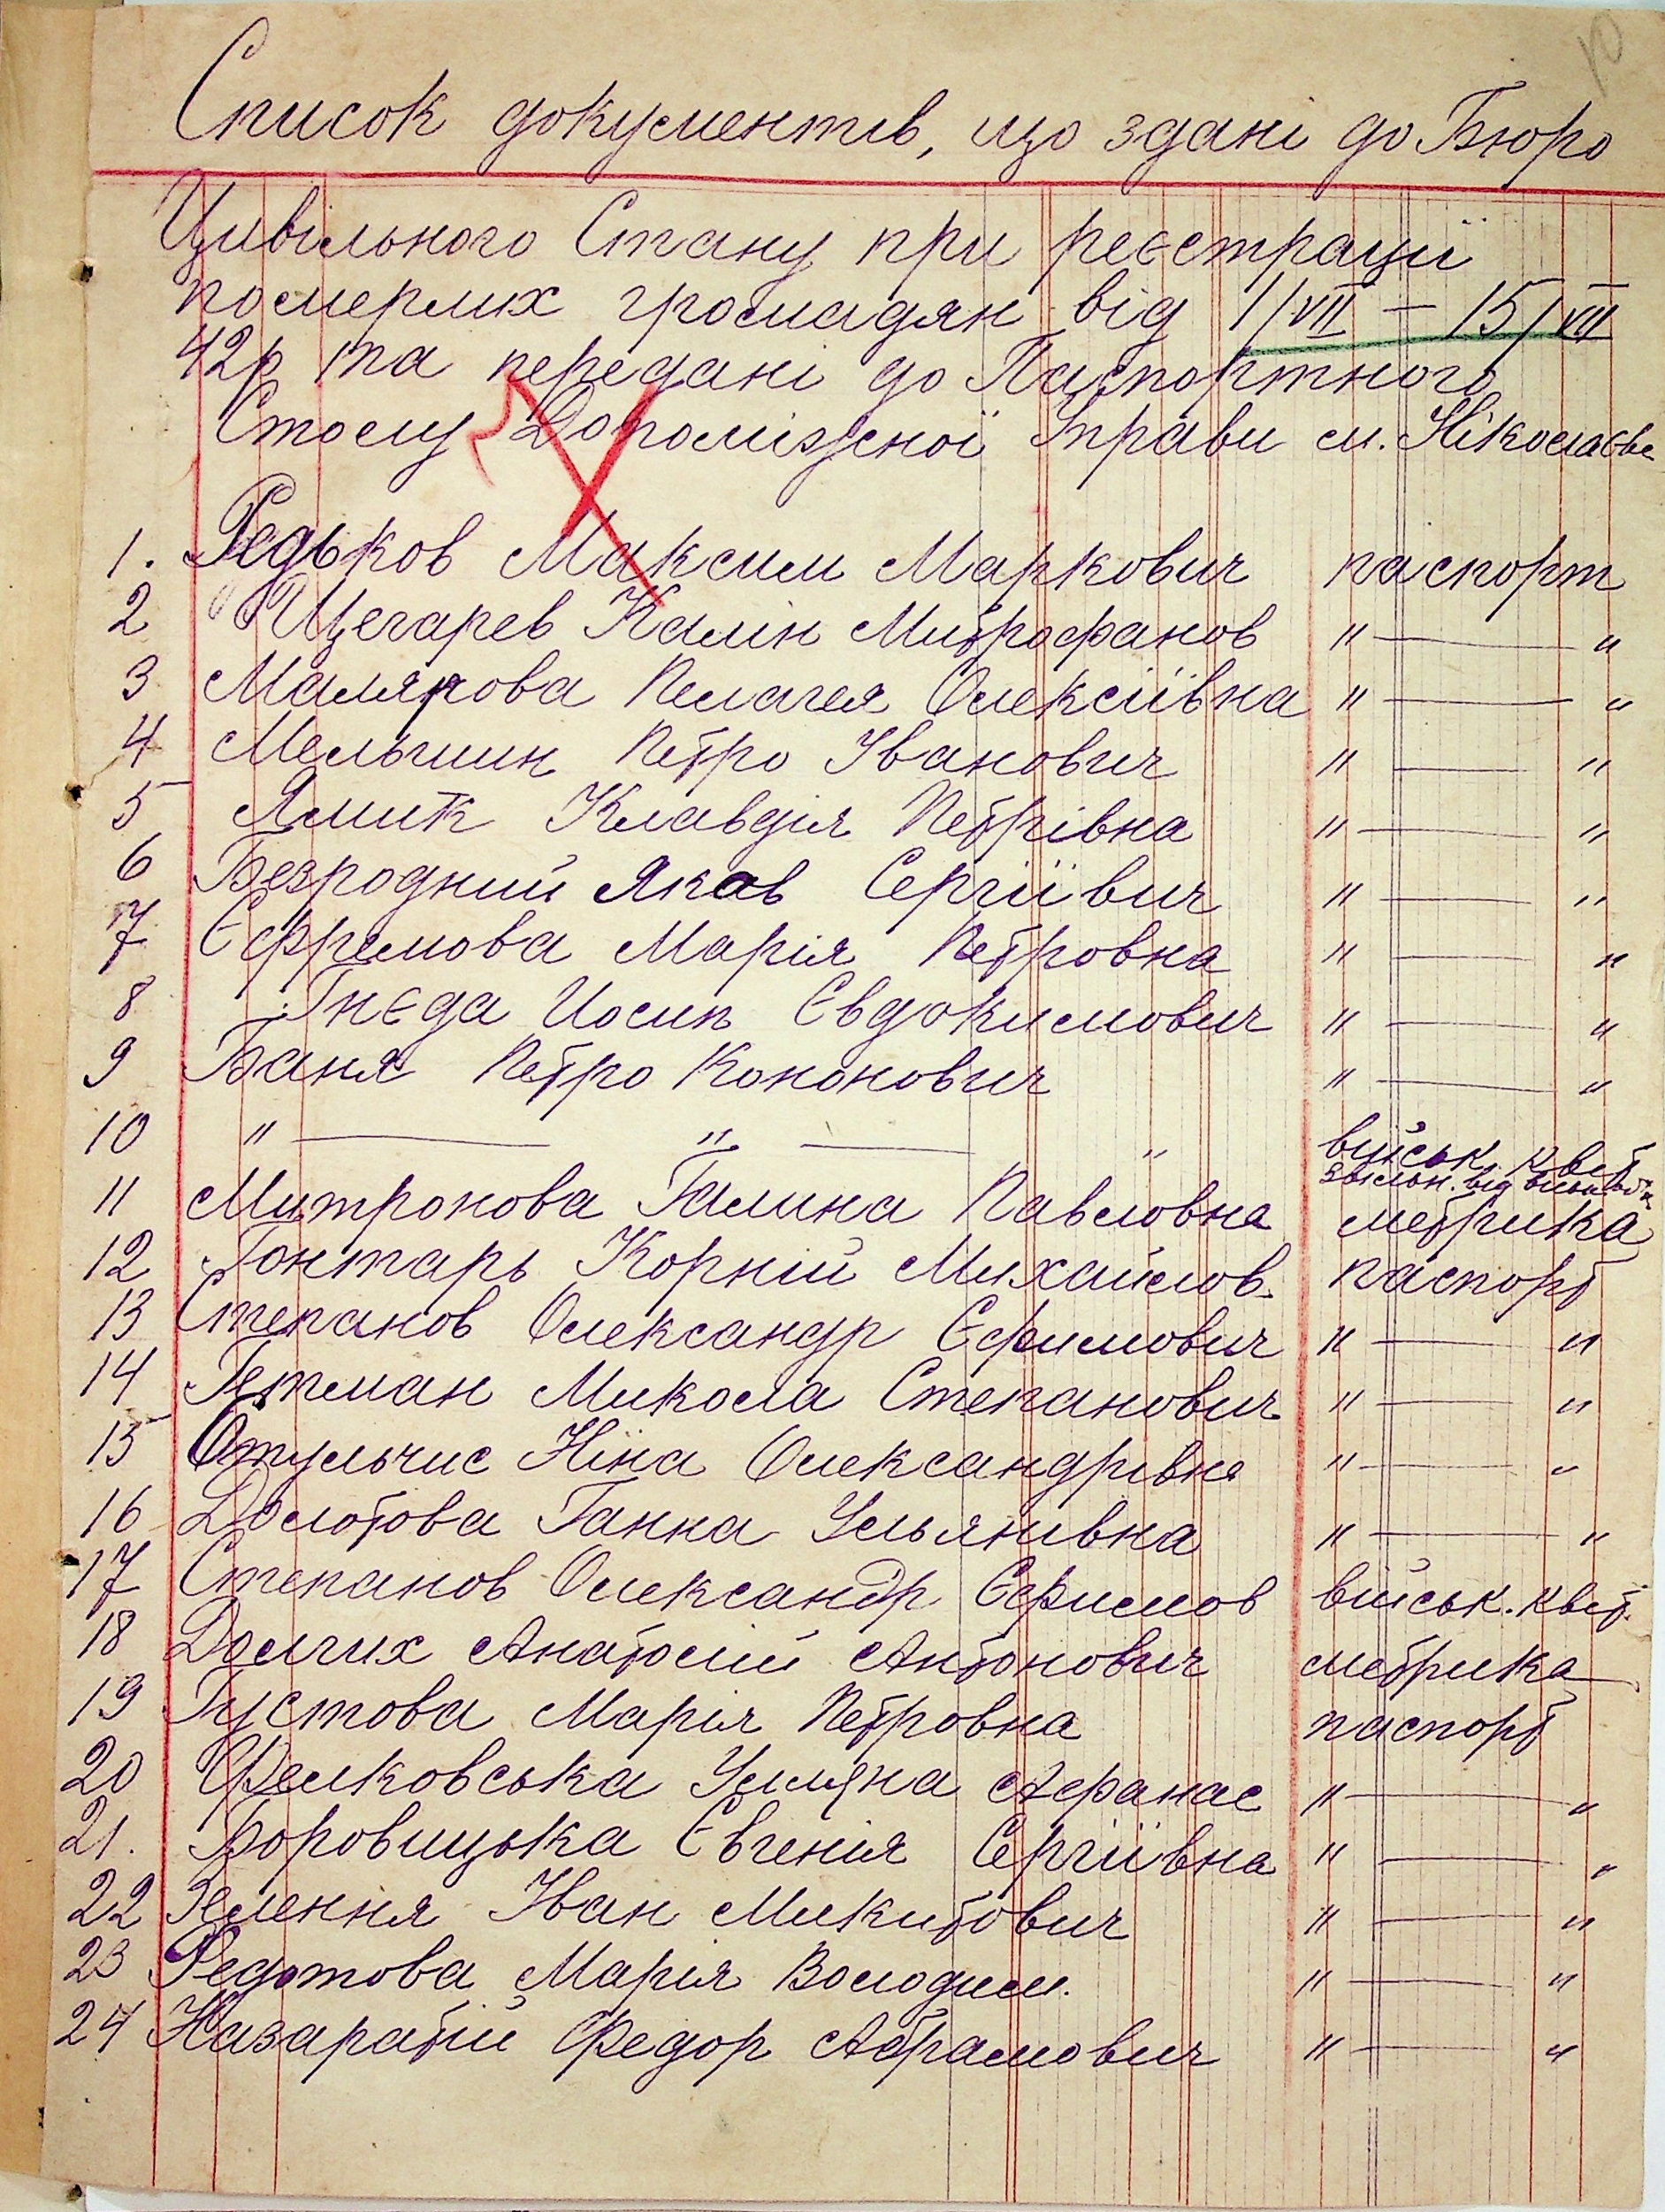 10
Список документів, що здані до Бюро
Цивільного Стану при реєстрації
померлих громадян від 1/VII – 15/VII
42р та передані до Паспортного
Столу Допоміжної Управи м. Ніколаєве
1. Редьков Максим Маркович паспорт
2 Щегарев Калін Митрофанов " — "
3 Малярова Пелагея Олексіївна " — "
4 Мельшин Петро Іванович " — "
5 Ямик Клавдія Петрівна " — "
6 Безродний Яков Сергіївич " — "
7 Єфремова Марія Петровна " — "
8 Гнєда Иосип Євдокимович " — "
9 Баня Петро Кононович " — "
10 " — " — " військ. квит
звільн. від військов.
11 Митронова Галина Павловна метрика
12 Гонтарь Корній Михайлов. паспорт
13 Степанов Олександр Єфимович " — "
14 Гетман Микола Степанович " — "
15 Отульчис Ніна Олександрівна " — "
16 Долотова Ганна Ульянівна " — "
17 Степанов Олександр Єфимов військ. квит.
18 Долгих Анатолій Антонович метрика
19 Густова Марія Петровна паспорт
20 Фелковська Уляна Афанас " — "
21. Боровицька Євгенія Сергіївна " — "
22 Зелення Іван Микитович " — "
23 Федотова Марія Володим. " — "
24 Назаратій Федор Абрамович " — "